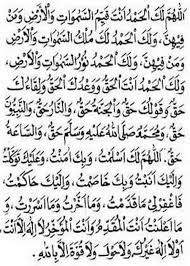 اَللّٰهُمَّ لَكَ الْحَمْدُ اَنْتَ قَيِّمُ السَّمٰوَاتِ وَالْاَرْضِ وَمَنْ
فِيْهِنَّ، وَلَكَ الْحَمْدُ لَكَ مُلْكُ السَّمٰوَاتِ وَالْاَرْضِ
وَمَنْ فِيْهِنَّ، وَلَكَ الْحَمْدُ نُوْرُ السَّمٰوَاتِ وَالْاَرْضِ،
وَلَكَ الْحَمْدُ اَنْتَ الْحَقُّ وَوَعْدُكَ الْحَقُّ وَلِقَاءُكَ
حَقٌّ وَقَوْلُكَ حَقٌّ وَالْجَنَّةُ حَقٌّ، وَالنَّارُ حَقٌّ، وَالنَّبِيُّوْنَ
حَقٌّ، وَمُحَمَّدٌ صَلَّى اللّٰهُ عَلَيْهِ وَسَلَّمَ حَقٌّ، وَالسَّاعَةُ
حَقٌّ. اَللّٰهُمَّ لَكَ اَسْلَمْتُ، وَبِكَ اٰمَنْتُ، وَعَلَيْكَ تَوَكَّلْتُ
وَاِلَيْكَ اَنَبْتُ وَبِكَ خَاصَمْتُ، وَاِلَيْكَ حَاكَمْتُ،
فَاغْفِرْلِيْ مَاقَدَّمْتُ، وَمَا اَخَّرْتُ وَمَا اَسْرَرْتُ، وَ
مَا اَعْلَنْتُ اَنْتَ الْمُقَدِّمُ وَاَنْتَ الْمُؤَخِّرُ لَا اِلٰهَ اِلَّا اَنْتَ.
اَوْلَا اِلٰهَ غَيْرُكَ وَلَا حَوْلَ وَلَا قُوَّةَ اِلَّا بِاللّٰهِ.